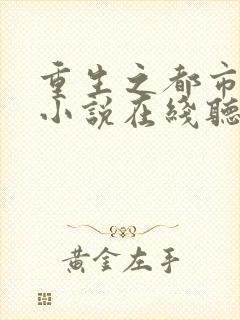 重生之都市
小説在綫聽
黃金左手